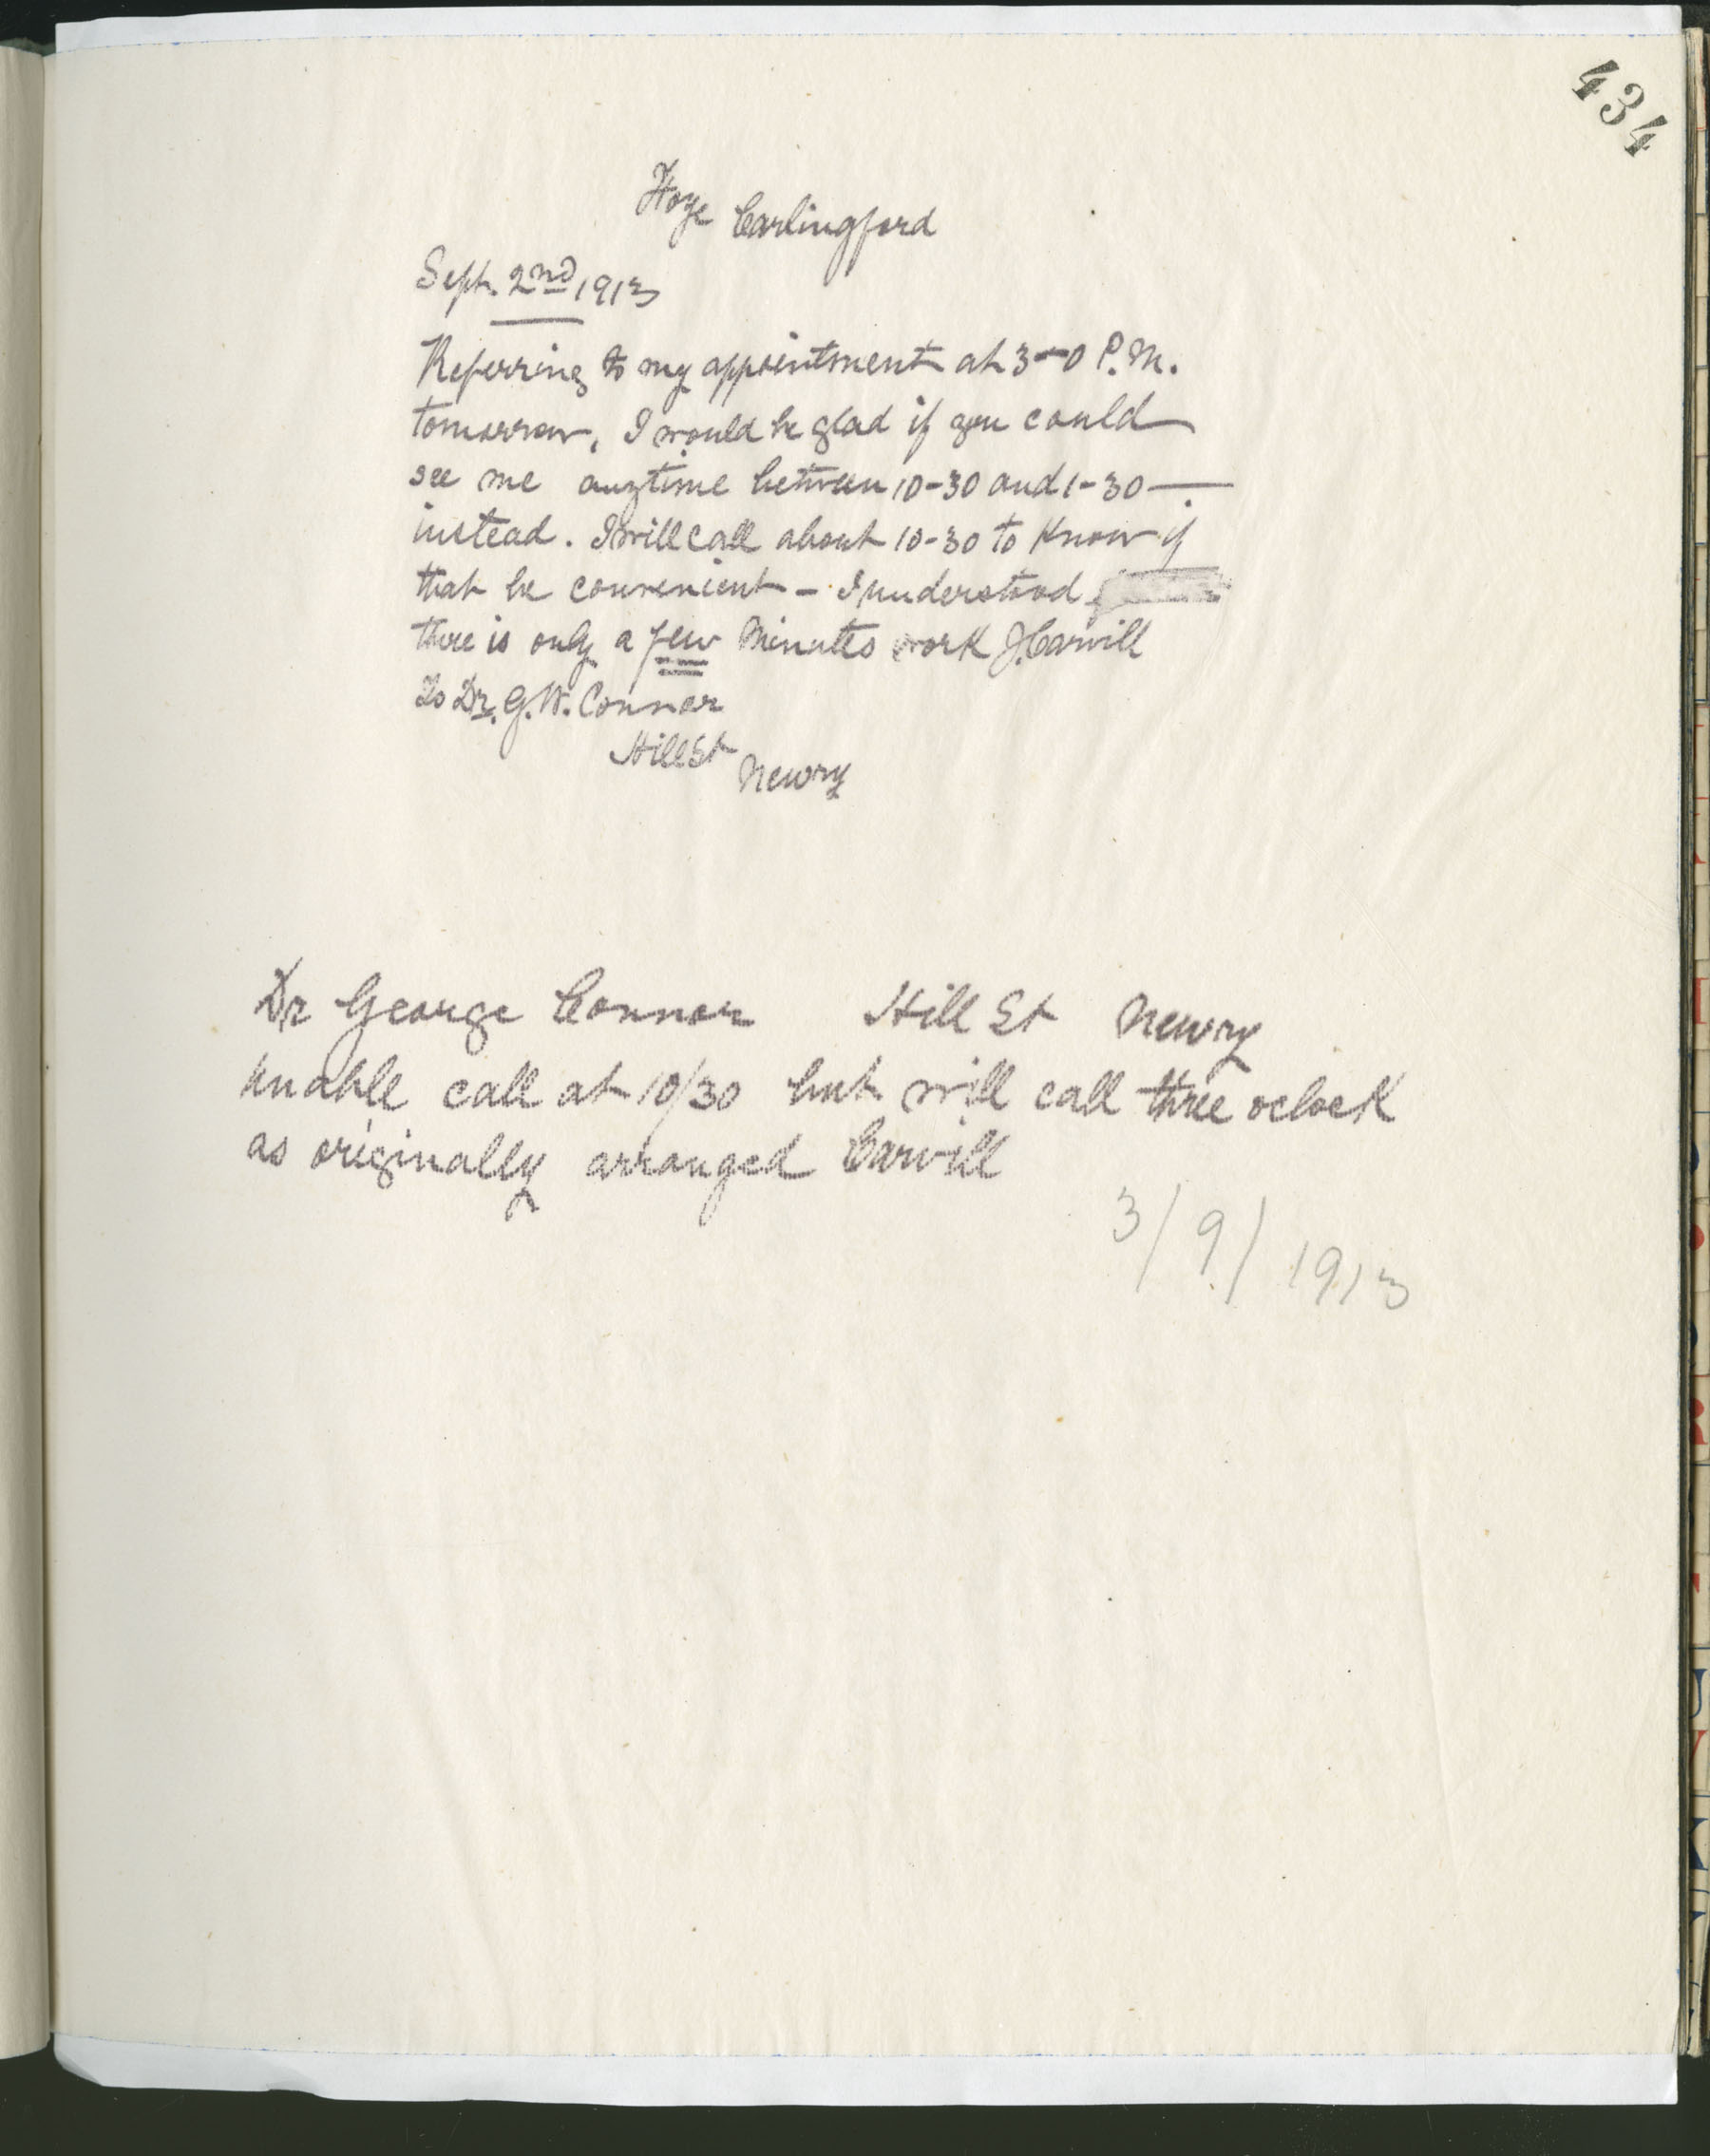 434
Hoye Carlingford
Sept. 2nd 1913
Referring to my appointment at 3-0 P.M.
tomorrow, I would be glad if you could
see me anytime between 10-30 and 1-30 —
instead. I will call about 10-30 to know if
that be convenient - I understood
there is only a few minutes work J. Carvill
To Dr. G. W. Connor
Hill St
Newry
Dr George Connor Hill St Newry
unable call at 10/30 but will call three oclock
as originally arranged Carvill
3/9/1913